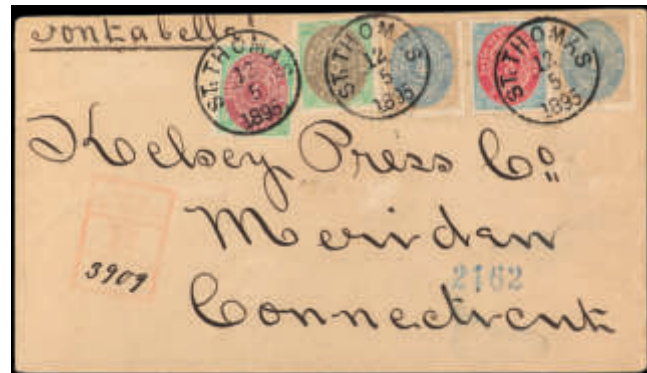 Fontabelle
ST. THOMAS
12
5
1895
ST. THOMAS
12
5
1895
ST. THOMAS
12
5
1895
Kelsey Press Co.
Meriden
3909
2162
Connecticut